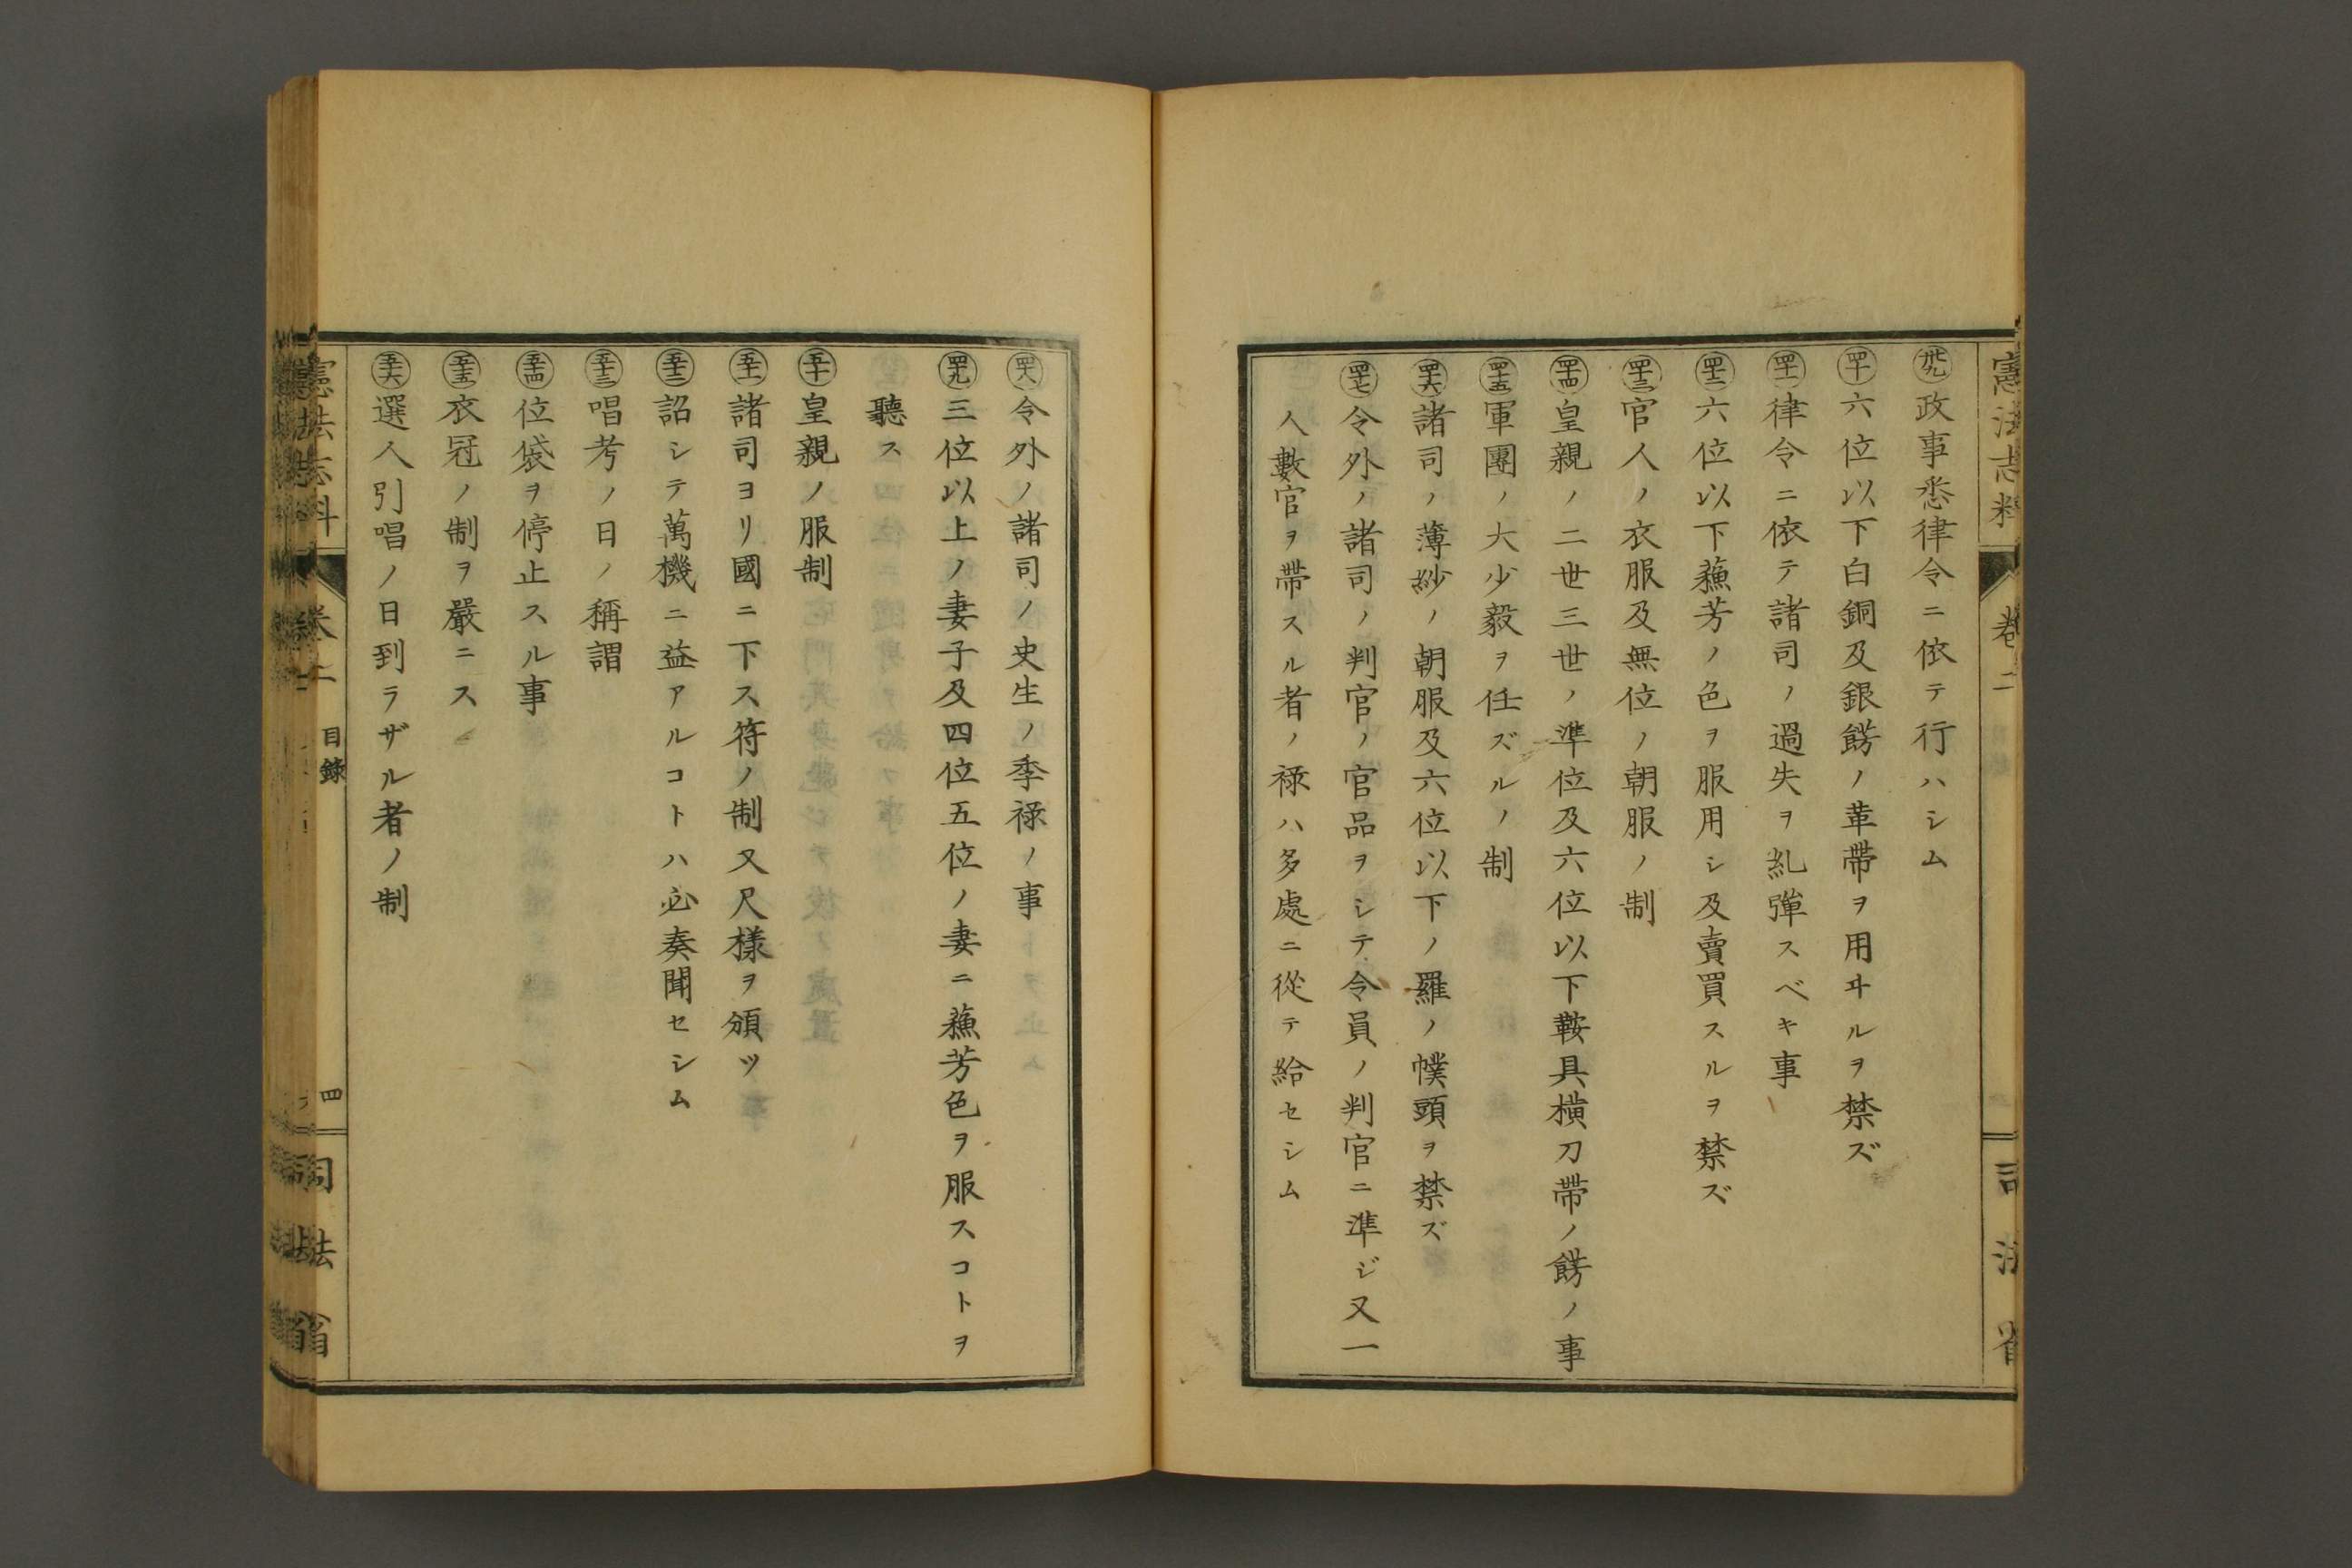 憲法志料 卷二 司法省
卅九 政事悉律令ニ依テ行ハシム
四十 六位以下白銅及銀餝ノ革帶ヲ用ヰルヲ禁ズ
四十一 律令ニ依テ諸司ノ過失ヲ糺彈スベキ事
四十二 六位以下蘓芳ノ色ヲ服用シ及賣買スルヲ禁ズ
四十三 官人ノ衣服及無位ノ朝服ノ制
四十四 皇親ノ二世三世ノ準位及六位以下鞍具横刀帶ノ餝ノ事
四十五 軍團ノ大少毅ヲ任ズルノ制
四十六 諸司ノ薄紗ノ朝服及六位以下ノ羅ノ幞頭ヲ禁ズ
四十七 令外ノ諸司ノ判官ノ官品ヲシテ令員ノ判官ニ準ジ又一
人數官ヲ帶スル者ノ祿ハ多處ニ從テ給セシム
四十八 令外ノ諸司ノ史生ノ季祿ノ事
四十九 三位以上ノ妻子及四位五位ノ妻ニ蘓芳色ヲ服スコトヲ
聽ス
五十 皇親ノ服制
五十一 諸司ヨリ國ニ下ス符ノ制又尺樣ヲ頒ツ
五十二 詔シテ萬機ニ益アルコトハ必奏聞セシム
五十三 唱考ノ日ノ稱謂
五十四 位袋ヲ停止スル事
五十五 衣冠ノ制ヲ嚴ニス
五十六 選人引唱ノ日到ラザル者ノ制
憲法志料 卷二 目錄 四 司法省